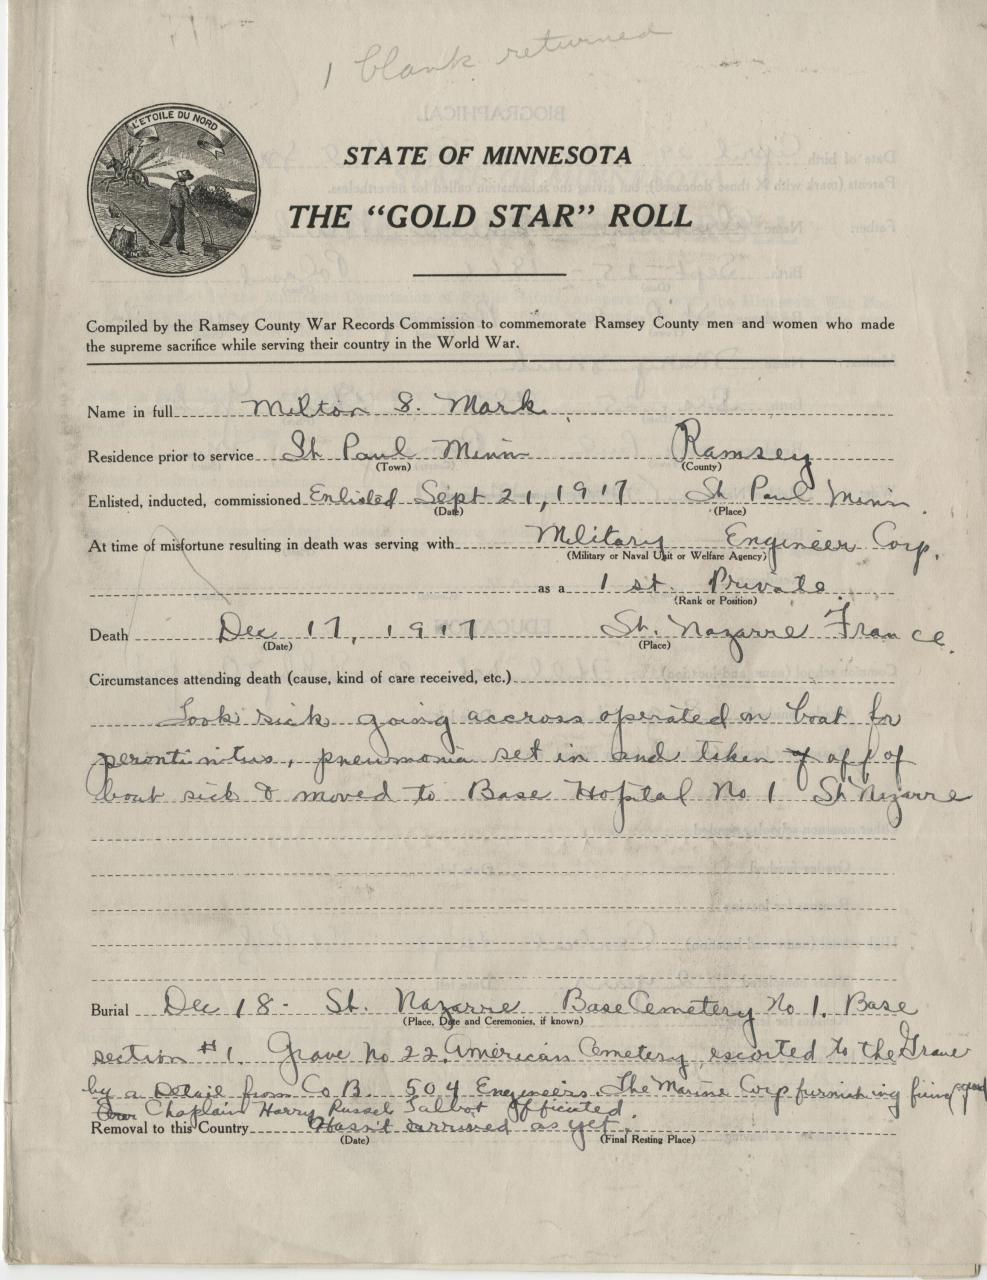 1 blank returned
L'ETOILE DU NORD
STATE OF MINNESOTA
THE "GOLD STAR" ROLL
Compiled by the Ramsey County War Records Commission to commemorate Ramsey County men and women who made
the supreme sacrifice while serving their country in the World War.
Name in full Milton S. Mark
Residence prior to service St Paul Minn Ramsey
(Town) (County)
Enlisted, inducted, commissioned Enlisted Sept 21, 1917 St Paul Minn.
(Date) (Place)
At time of misfortune resulting in death was serving with Military Engineer Corp.
(Military or Naval Unit or Welfare Agency)
as a 1st. Private.
(Rank or Position)
Death Dec 17, 1917 St. Nazarre France.
(Date) (Place)
Circumstances attending death (cause, kind of care received, etc.)
Took sick going accross operated on boat for
perontinitus, pneumonia set in and taken off of
boat sick & moved to Base Hopital No 1 St Nazarre
Burial Dec 18 - St. Nazarre Base Cemetery No 1. Base
(Place, Date and Ceremonies, if known)
section #1. Grave No 22. American Cemetery, escorted to the Grave
by a Detail from Co B. 504 Engineers. The Marine Corp furnishing firing squad
Chaplain Harry Russel Talbot officiated.
Removal to this Country Hasn't arrived as yet.
(Date) (Final Resting Place)